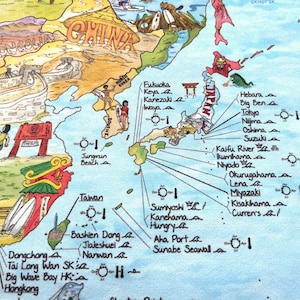 CHINA
JAPAN
Fukuoka
Keya
Kanezaki
Iwaya
Hebara
Big Ben
Tokyo
Niijima
Oshima
Suzuki
Jungmun
Beach
Kaifu River
Ikumihama
Niyodo
Okurugahama
Lena
Miyazaki
Kisakihama
Curren's
Sumiyoshi
Kanahama
Hungry
Aha Port
Sunabe Seawall
Taiwan
Bashien Dong
Jialeshuei
Nanwan
Dongchong
Tai Long Wan SK
Big Wave Bay HK
Hongkong